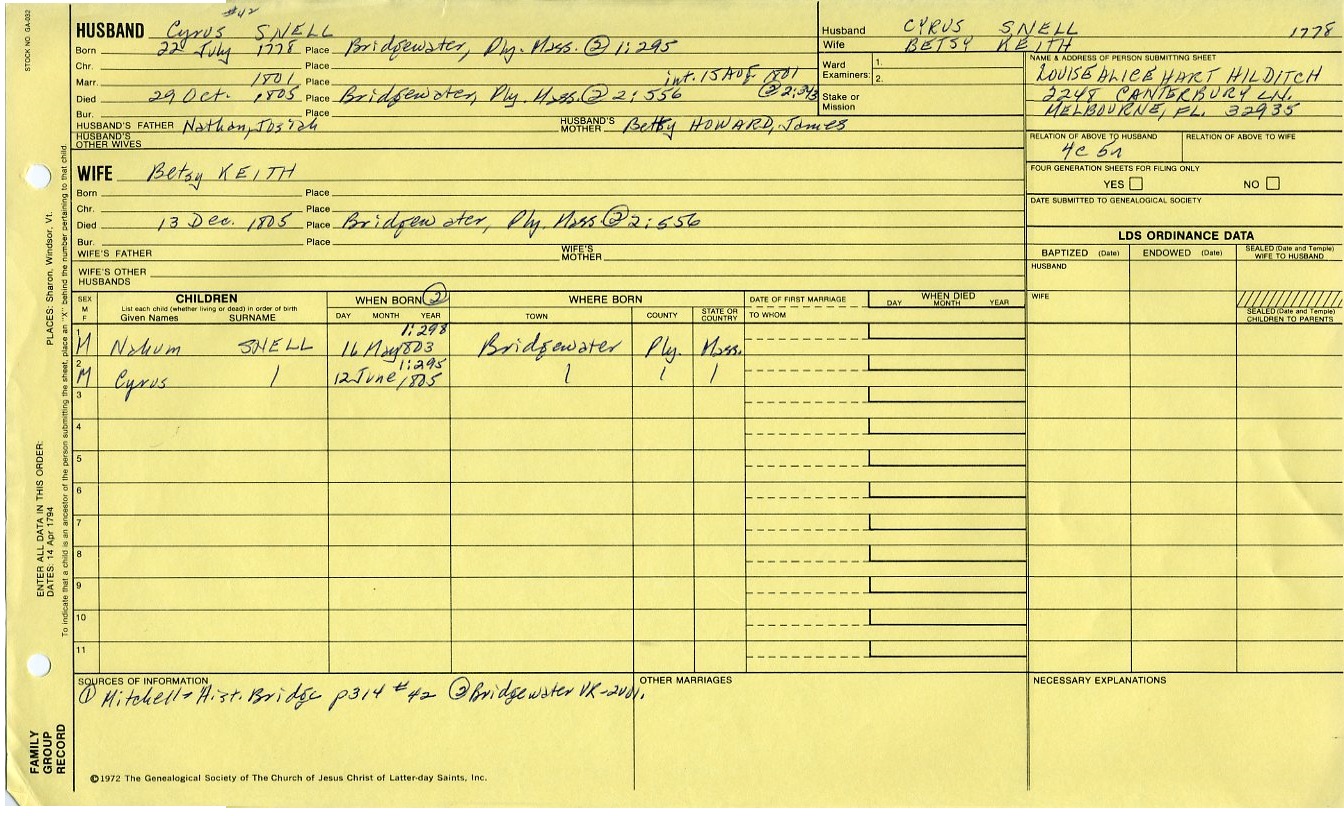 STOCK NO. GA-032
#42
HUSBAND Cyrus SNELL
Born 22 July 1778 Place Bridgewater, Ply. Mass. ② 1:295
Chr. Place
Marr. 1801 Place int. 15 AUG 1801
Died 29 Oct. 1805 Place Bridgewater, Ply. Mass. ② 2:556 ② 2:343
Bur. Place
HUSBAND'S FATHER Nathan, Josiah HUSBAND'S MOTHER Betty HOWARD, James
HUSBAND'S OTHER WIVES
WIFE Betsy KEITH
Born Place
Chr. Place
Died 13 Dec. 1805 Place Bridgewater, Ply. Mass ② 2:556
Bur. Place
WIFE'S FATHER WIFE'S MOTHER
WIFE'S OTHER HUSBANDS
Husband CYRUS SNELL 1778
Wife BETSY KEITH
Ward Examiners: 1.
2.
Stake or Mission
NAME & ADDRESS OF PERSON SUBMITTING SHEET
LOUISE ALICE HART HILDITCH
2248 CANTERBURY LN.
MELBOURNE, FL. 32935
RELATION OF ABOVE TO HUSBAND RELATION OF ABOVE TO WIFE
4c 5r
FOUR GENERATION SHEETS FOR FILING ONLY
YES NO
DATE SUBMITTED TO GENEALOGICAL SOCIETY
LDS ORDINANCE DATA
BAPTIZED (Date) ENDOWED (Date) SEALED (Date and Temple) WIFE TO HUSBAND
HUSBAND
WIFE
SEALED (Date and Temple) CHILDREN TO PARENTS
SEX M F CHILDREN WHEN BORN ② WHERE BORN DATE OF FIRST MARRIAGE WHEN DIED
List each child (whether living or dead) in order of birth
Given Names SURNAME DAY MONTH YEAR TOWN COUNTY STATE OR COUNTRY TO WHOM DAY MONTH YEAR
1 1:298
M Nahum SNELL 16 May 1803 Bridgewater Ply. Mass.
2 1:295
M Cyrus 12 June 1805
3
4
5
6
7
8
9
10
11
SOURCES OF INFORMATION OTHER MARRIAGES NECESSARY EXPLANATIONS
① Mitchell's Hist. Bridge p314 #42 ② Bridgewater VR-2vol.
©1972 The Genealogical Society of The Church of Jesus Christ of Latter-day Saints, Inc.
FAMILY GROUP RECORD
ENTER ALL DATA IN THIS ORDER:
DATES: 14 Apr 1794
PLACES: Sharon, Windsor, Vt.
To indicate that a child is an ancestor of the person submitting the sheet, place an "X" behind the number pertaining to that child.